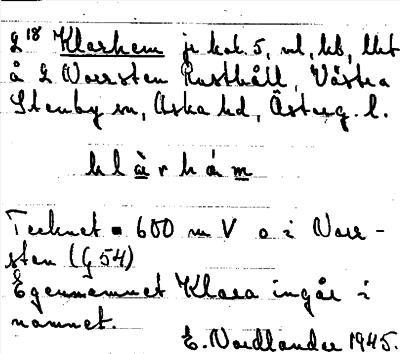 L¹⁸ Klarhem je kol. 5, nl, kb, lht
å L Norrsten Rusthåll, Västra
Stenby sn, Aska hd, Österg. l.
klàrhám
Tecknet = 600 m V o i Norr-
sten (G 54)
Egennamnet Klara ingår i
namnet.
E. Nordlander 1945.